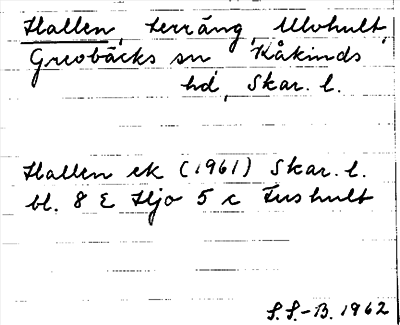 Hallen, terräng, Ulvhult,
Grevbäcks sn Kåkinds
hd, Skar. l.
Hallen ek (1961) Skar. l.
bl. 8 E Hjo 5 c Fushult
S.S.-B. 1962